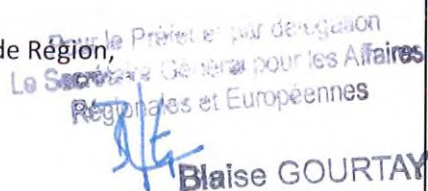 de Région,
Pour le Préfet et par délégation
Le Secrétaire Général pour les Affaires
Régionales et Européennes
Blaise GOURTAY